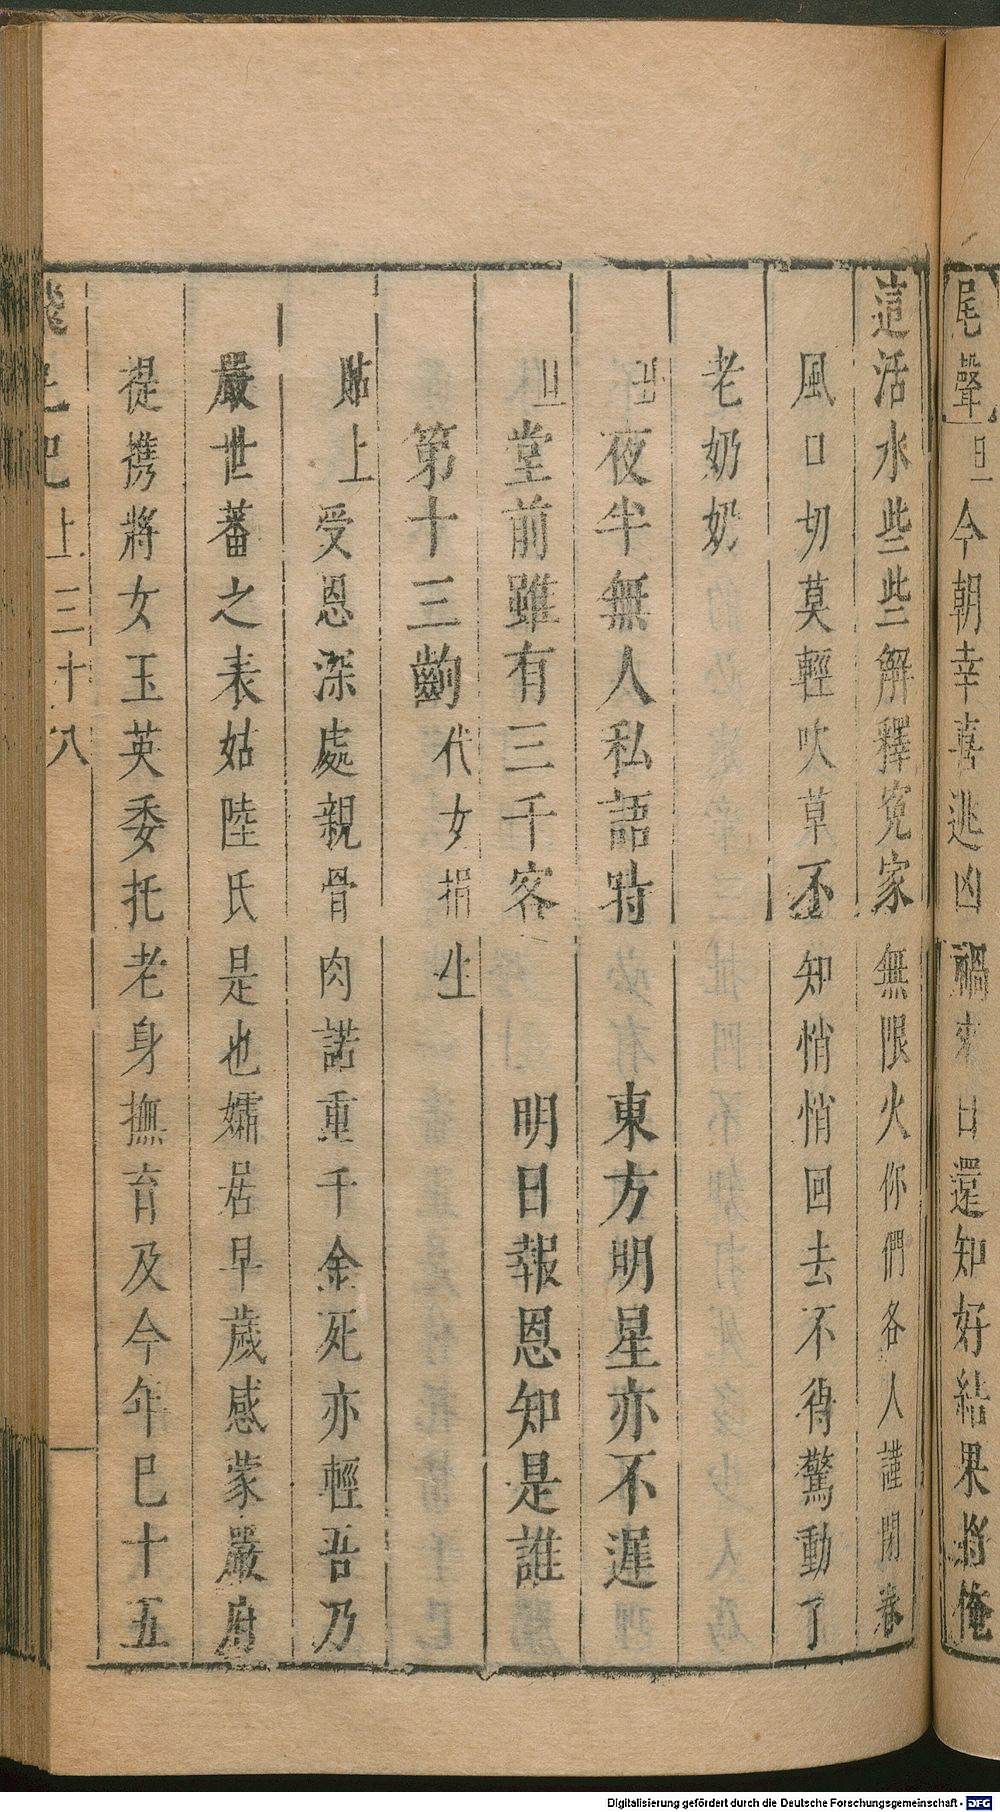 尾聲旦今朝幸喜逃凶禍來日還知好結果將俺
這活水些些解釋冤家無限火你們各人謹閉巷
風口切莫輕吹草不知悄悄回去不得驚動了
老奶奶
夜半無人私語時 東方明星亦不遲
旦堂前雖有三千客 明日報恩知是誰
第十三齣代女捐生
貼上受恩深處親骨肉諾重千金死亦輕吾乃
嚴世蕃之表姑陸氏是也孀居早歲感蒙嚴府
提携將女玉英委托老身撫育及今年已十五
上 三十八
Digitalisierung gefördert durch die Deutsche Forschungsgemeinschaft - DFG